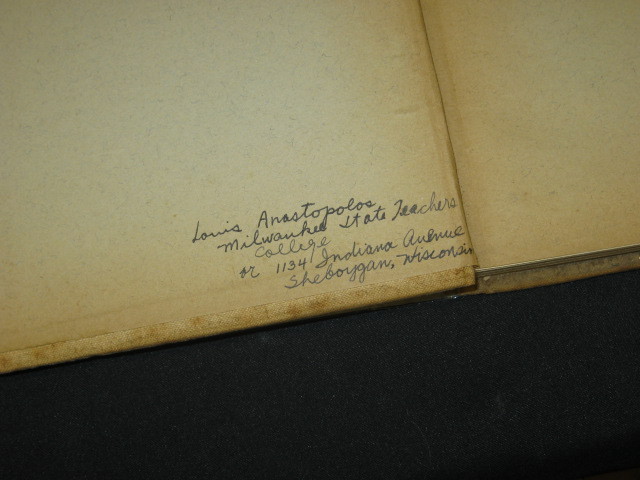 Louis Anastopolos
Milwaukee State Teachers
College
or 1134 Indiana Avenue
Sheboygan, Wisconsin